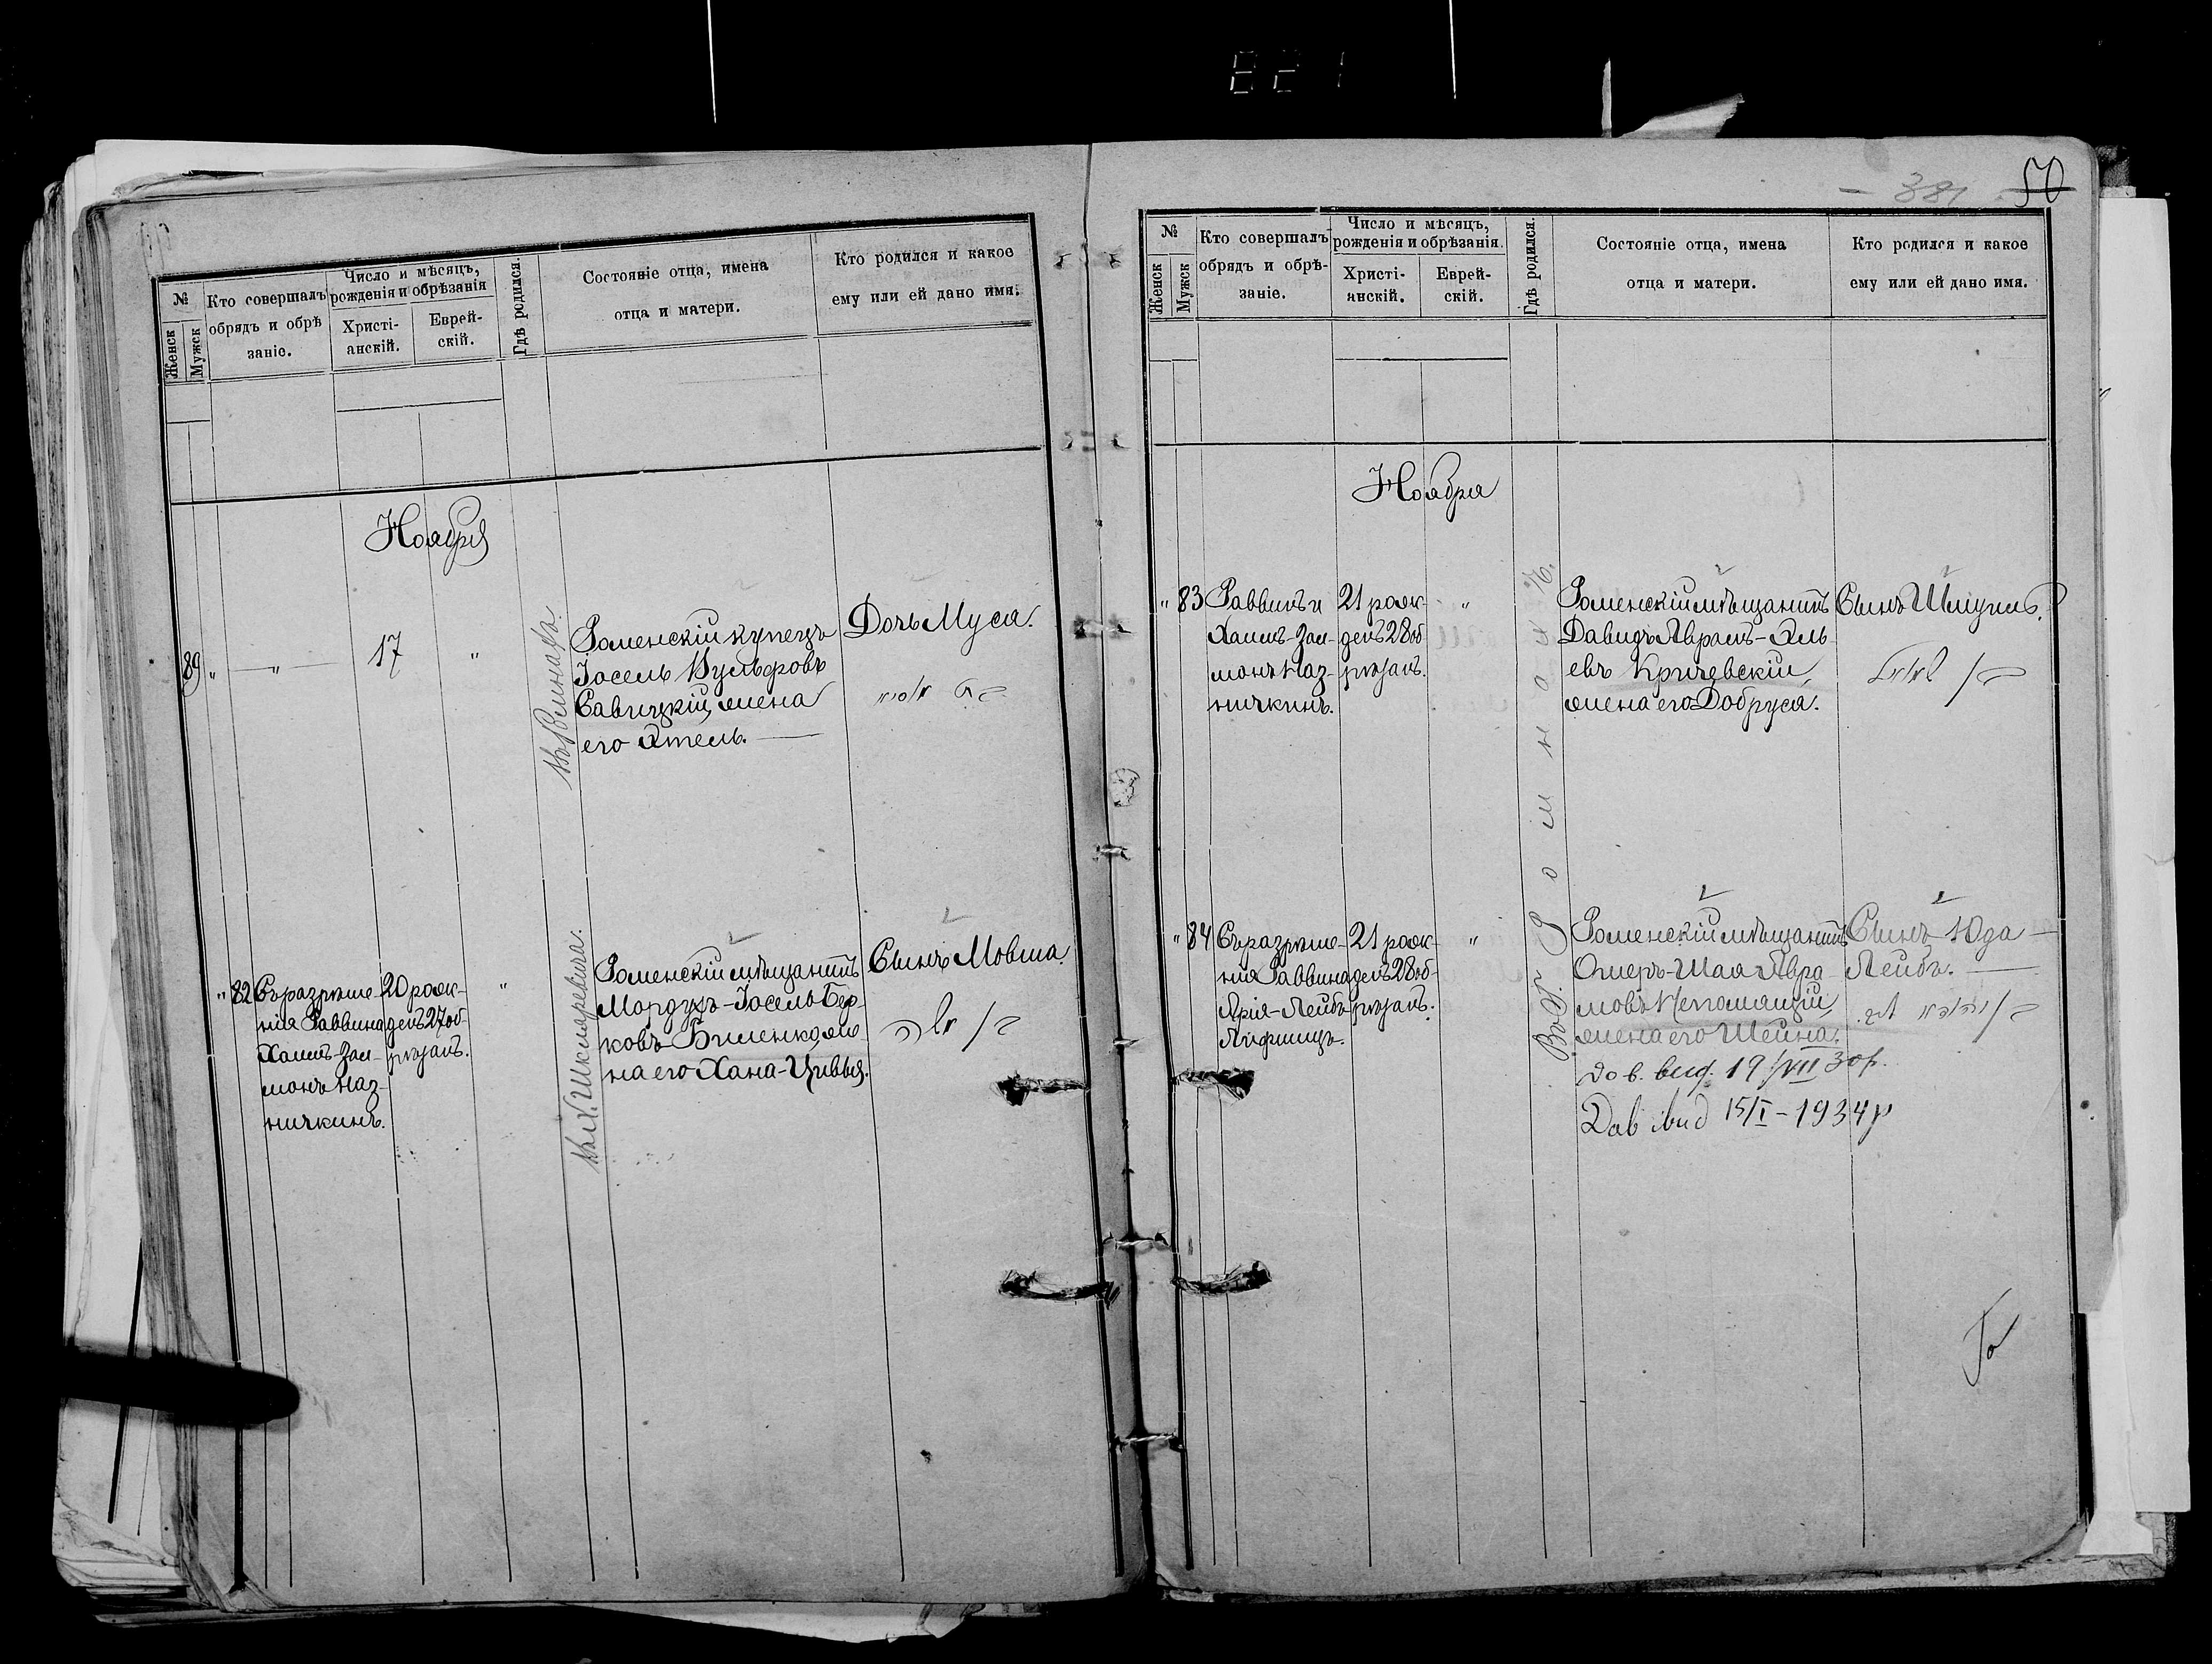 821
№
Женск
Мужск
Кто совершалъ
обрядъ и обрѣ
заніе.
Число и мѣсяцъ,
рожденія и обрѣзанія
Христі-
анскій.
Еврей-
скій.
Гдѣ родился.
Состояніе отца, имена
отца и матери.
Кто родился и какое
ему или ей дано имя.
Ноября
89 " — " — 17 "
Роменскій купецъ
Іосель Вульфовъ
Савицкій, жена
его Этель. —
Дочь Муся.
82
Съ разрѣше-
нія Раввина
Хаимъ-Зал-
монъ Наз-
ничкинъ.
20 рож-
денъ 27 об-
рѣзанъ.
"
Роменскій мѣщанинъ
Мордухъ-Іосель Бер-
ковъ Биленко, же-
на его Хана-Цивья.
Сынъ Мовша.
381
50
№
Женск
Мужск
Кто совершалъ
обрядъ и обрѣ-
заніе.
Число и мѣсяцъ,
рожденія и обрѣзанія.
Христі-
анскій.
Еврей-
скій.
Гдѣ родился.
Состояніе отца, имена
отца и матери.
Кто родился и какое
ему или ей дано имя.
Ноября
" 83
Раввинъ и
Хаимъ-Зал-
монъ Наз-
ничкинъ.
21 рож-
денъ 28 об
рѣзанъ.
"
Въ г. Ромнахъ.
Роменскій мѣщанинъ
Давидъ Абрамъ-Эль-
евъ Кричевскій,
жена его Добруся.
Сынъ
" 84
Съ разрѣше-
нія Раввина
Арія-Лейбъ
Лифшицъ.
21 рож-
денъ 28 об-
рѣзанъ.
"
Роменскій мѣщанинъ
Ошеръ-Шая Абра-
мовъ
жена его Шейна.
Сынъ Юда —
Лейбъ. —
Дов. вид. 19 /VII 30 р.
Dов вид 15/I - 1934 р